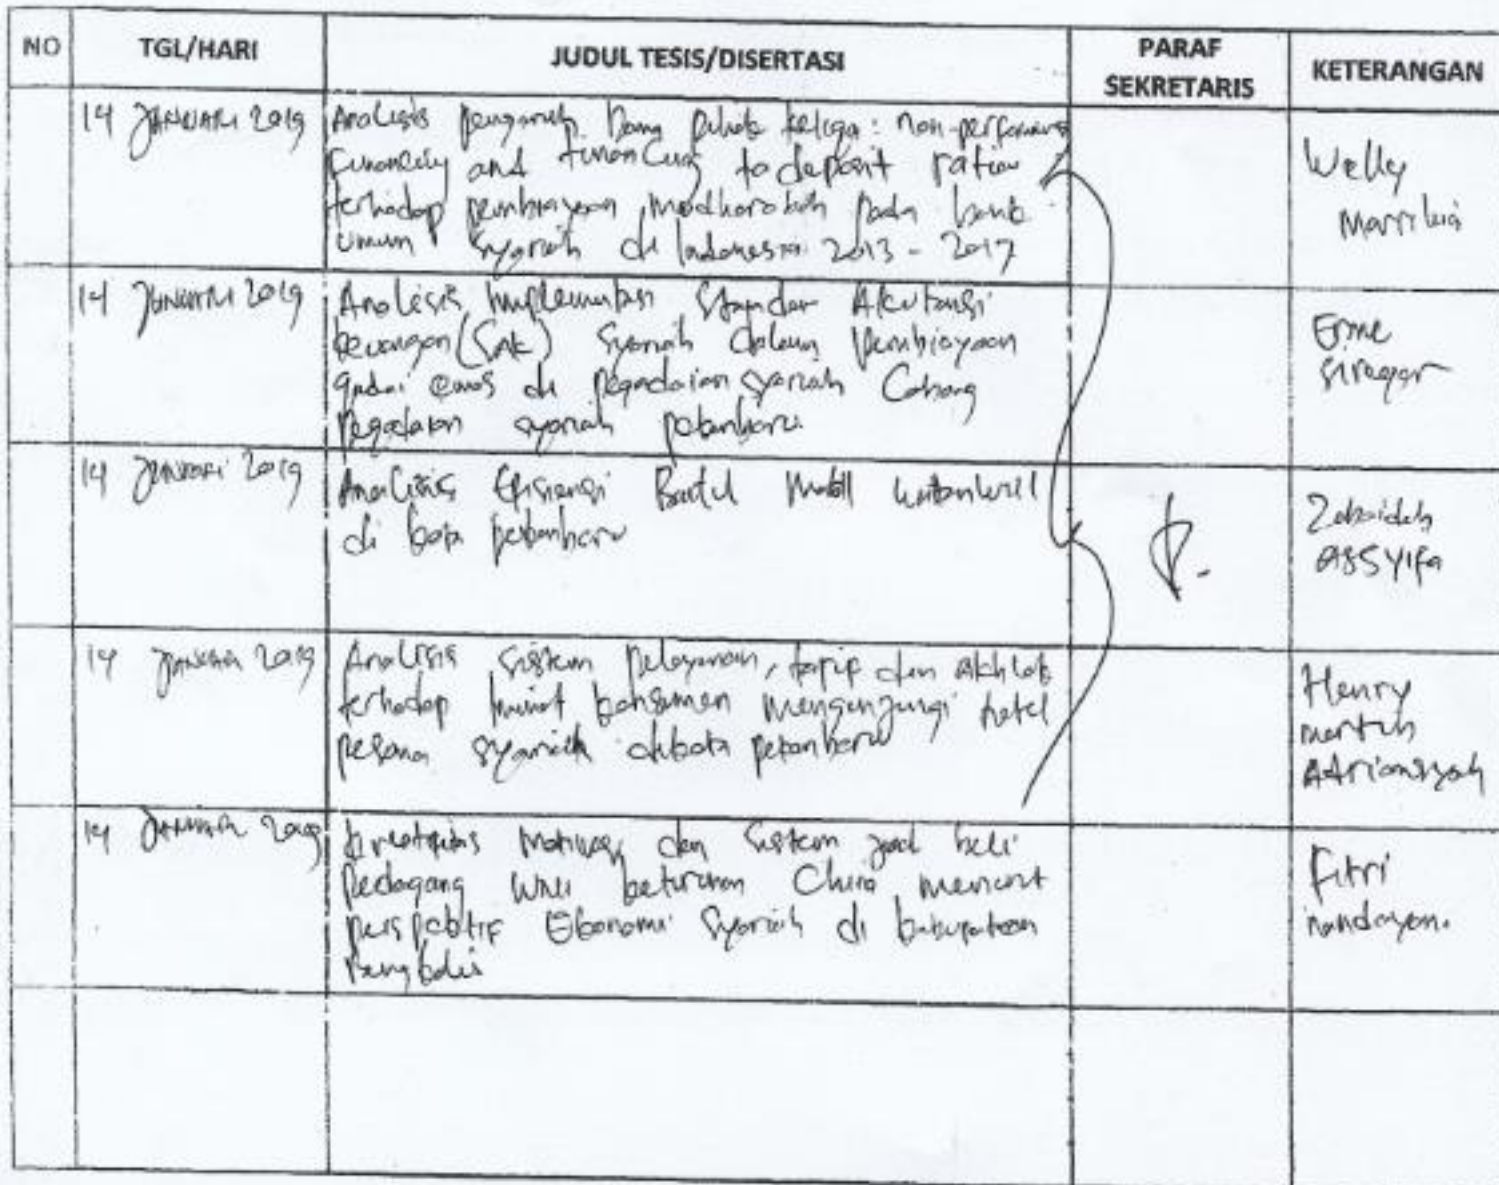 NO TGL/HARI JUDUL TESIS/DISERTASI PARAF SEKRETARIS KETERANGAN
14 JANUARI 2019
Analisis pengaruh Dana pihak ketiga : non-performing
financing and financing to deposit ratio
terhadap pembiayaan mudharabah pada bank
umum syariah di Indonesia 2013 - 2017
Welly
14 JANUARI 2019
Analisis Implementasi Standar Akutansi
keuangan (SAK) Syariah dalam Pembiayaan
gadai emas di Pegadaian syariah Cabang
Pegadaian syariah pekanbaru
siregar
14 JANUARI 2019
Analisis Efisiensi
di kota pekanbaru
Zubaidah
ASSYIFA
14 JANUARI 2019
Analisis sistem pelayanan, tarif dan akhlak
terhadap minat konsumen mengunjungi hotel
pesona syariah dikota pekanbaru
Henry
Adriansyah
14 JANUARI 2019
kreatifitas Motivasi dan sistem jual beli
Pedagang WNI keturunan China menurut
perspektif Ekonomi Syariah di kabupaten
Bengkalis
Fitri